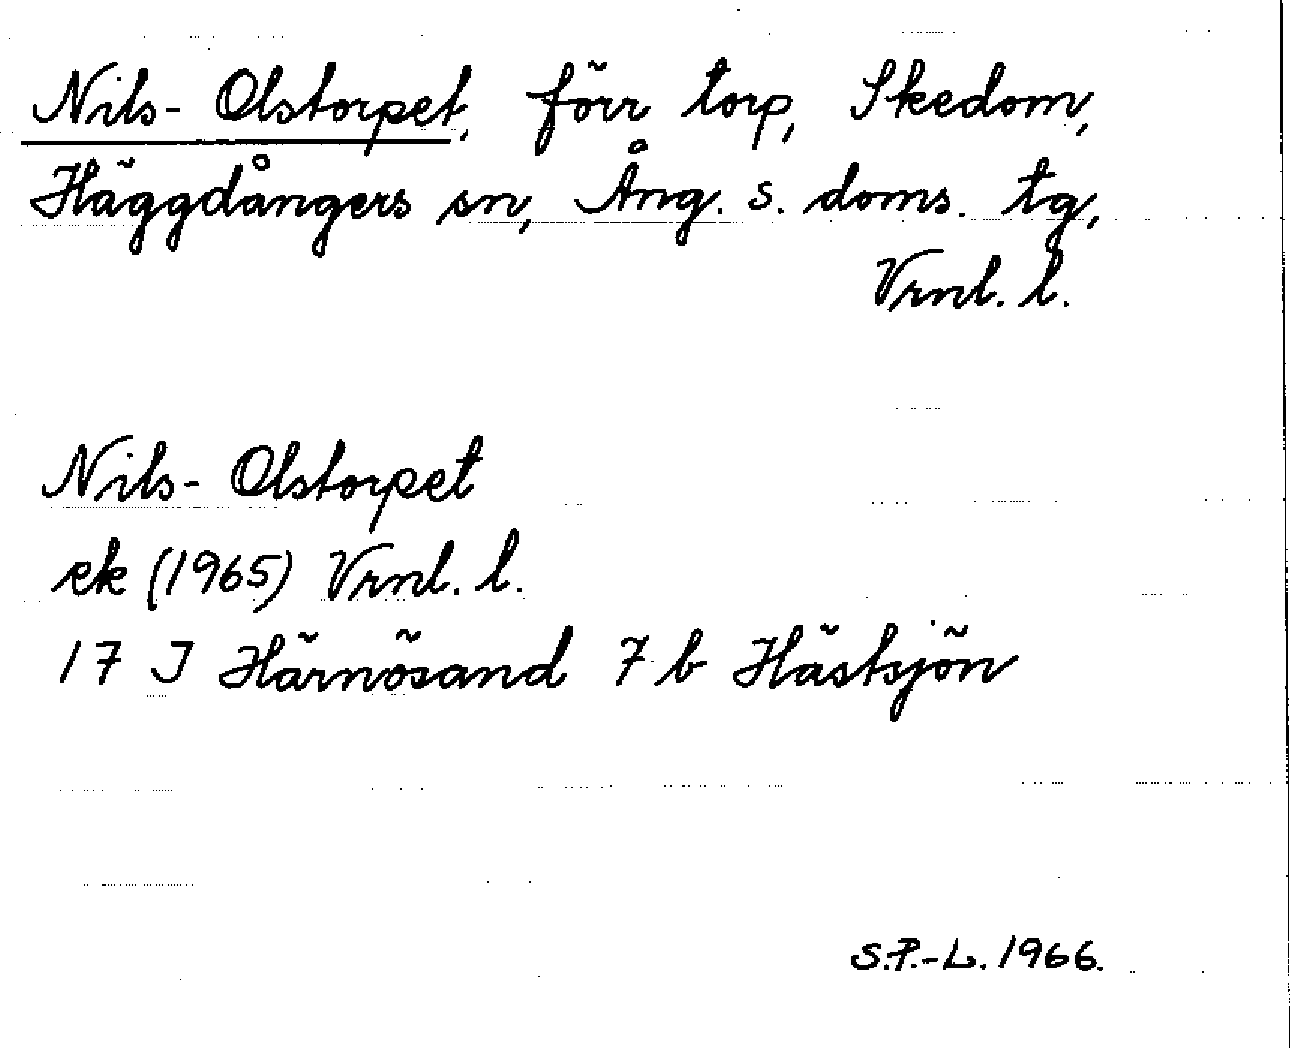 Nils-Olstorpet, förr torp, Skedom,
Häggdångers sn, Ång. s. doms. tg,
Vrnl. l.
Nils-Olstorpet
ek (1965) Vrnl. l.
17 J Härnösand 7 b Hästsjön
S.P.-L. 1966.